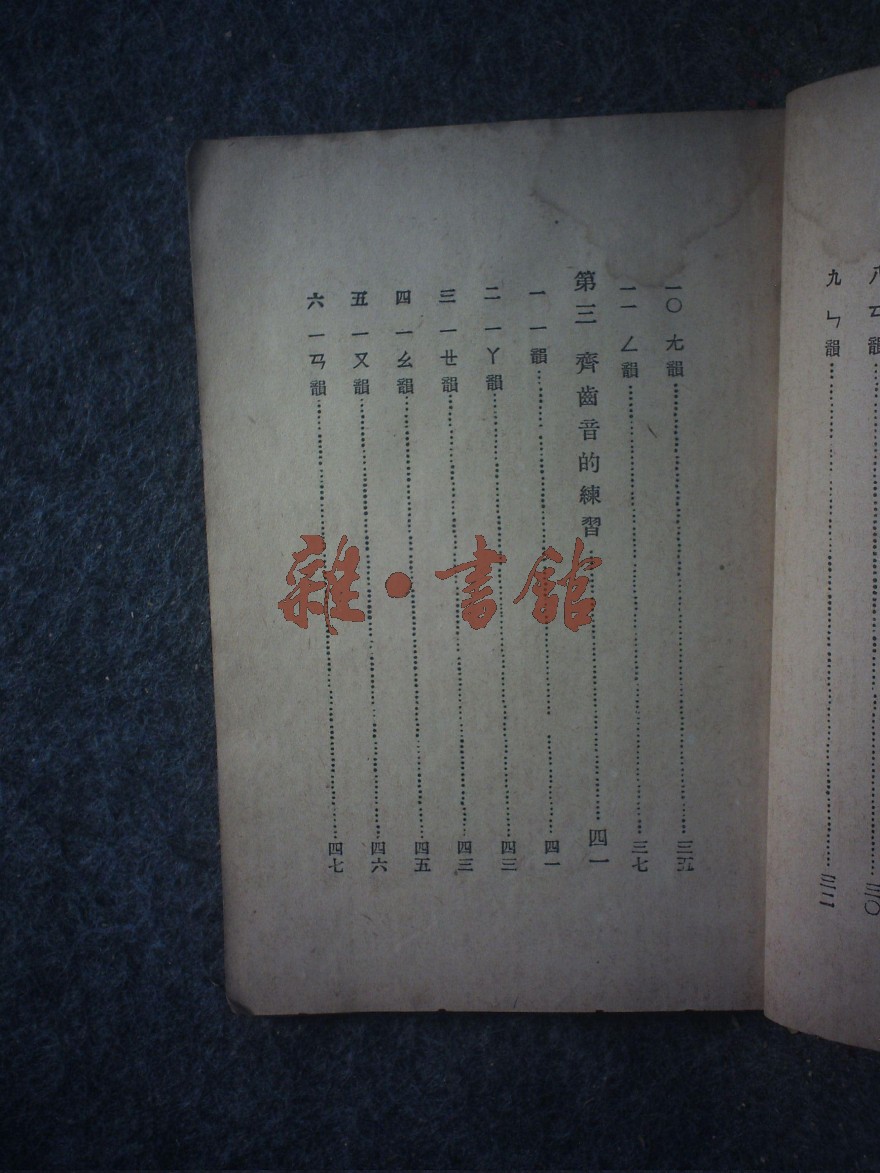 八 ㄢ韻……三〇
九 ㄣ韻……三二
一〇 ㄤ韻……三五
一一 ㄥ韻……三七
第三 齊齒音的練習……四一
一 ㄧ韻……四一
二 ㄧㄚ韻……四三
三 ㄧㄝ韻……四三
四 ㄧㄠ韻……四五
五 ㄧㄡ韻……四六
六 ㄧㄢ韻……四七
雜·書館